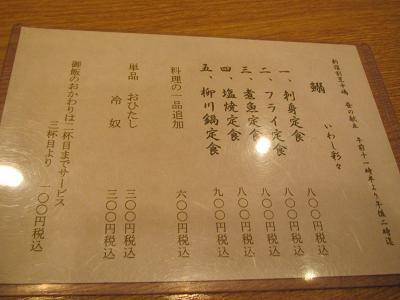 新宿割烹中嶋 昼の献立 午前十一時半より午後二時迄
鰯 いわし彩々
一、刺身定食 八〇〇円税込
二、フライ定食 八〇〇円税込
三、煮魚定食 八〇〇円税込
四、塩焼定食 八〇〇円税込
五、柳川鍋定食 九〇〇円税込
料理の一品追加 六〇〇円税込
単品 おひたし 三〇〇円税込
冷奴 三〇〇円税込
御飯のおかわりは二杯目までサービス
三杯目より 一〇〇円税込